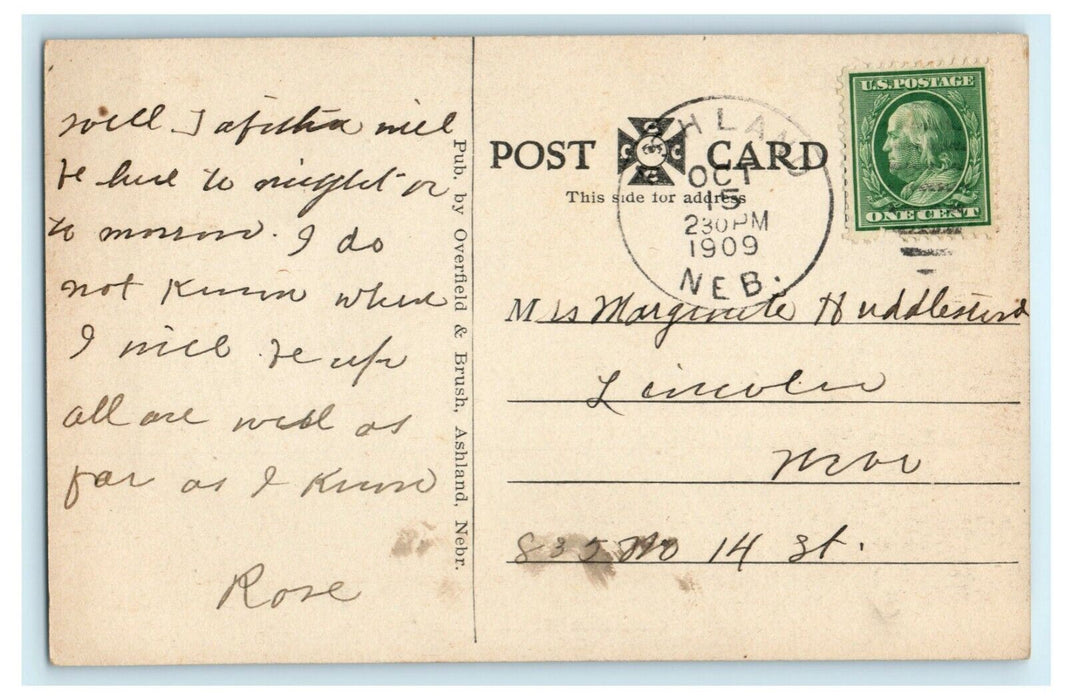 well Tabitha will
be here to night or
to morrow. I do
not know when
I will be up
all are well as
far as I know
Rose
Pub. by Overfield & Brush, Ashland, Nebr.
POST CARD
This side for address
HLAND
OCT
15
230PM
1909
NEB.
U.S. POSTAGE
ONE CENT
Mrs Marguerite Huddleston
Lincoln
835 No 14 St.